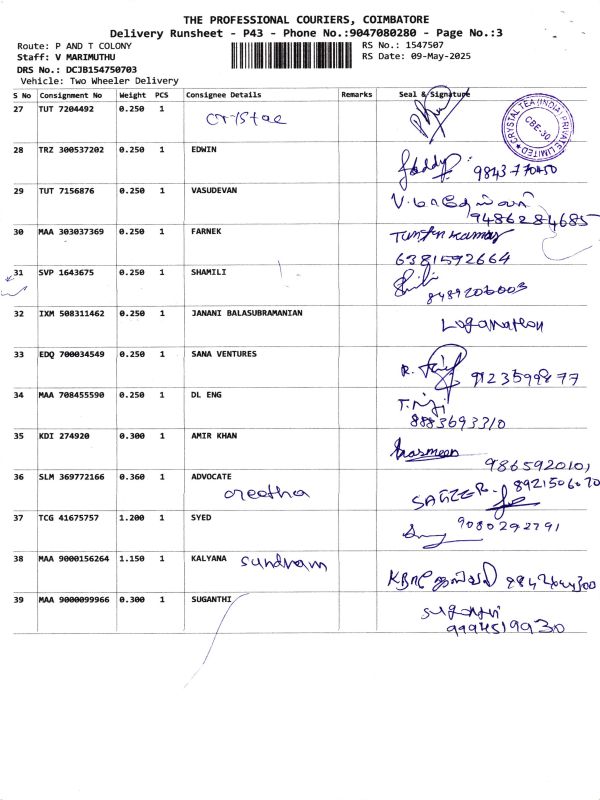 THE PROFESSIONAL COURIERS, COIMBATORE
Delivery Runsheet - P43 - Phone No.:9047080280 - Page No.:3
Route: P AND T COLONY
RS No.: 1547507
Staff: V MARIMUTHU
RS Date: 09-May-2025
DRS No.: DCJB154750703
Vehicle: Two Wheeler Delivery
S No Consignment No Weight PCS Consignee Details Remarks Seal & Signature
27 TUT 7204492 0.250 1
CRYSTAL TEA (INDIA) PRIVATE LIMITED CBE-30
28 TRZ 300537202 0.250 1 EDWIN
29 TUT 7156876 0.250 1 VASUDEVAN
9486284685
30 MAA 303037369 0.250 1 FARNEK
6381592664
31 SVP 1643675 0.250 1 SHAMILI
32 IXM 508311462 0.250 1 JANANI BALASUBRAMANIAN
Loganathan
33 EDQ 700034549 0.250 1 SANA VENTURES
34 MAA 708455590 0.250 1 DL ENG
8883693310
35 KDI 274920 0.300 1 AMIR KHAN
36 SLM 369772166 0.360 1 ADVOCATE
37 TCG 41675757 1.200 1 SYED
9080292791
38 MAA 9000156264 1.150 1 KALYANA Sundram
39 MAA 9000099966 0.300 1 SUGANTHI
9994519930